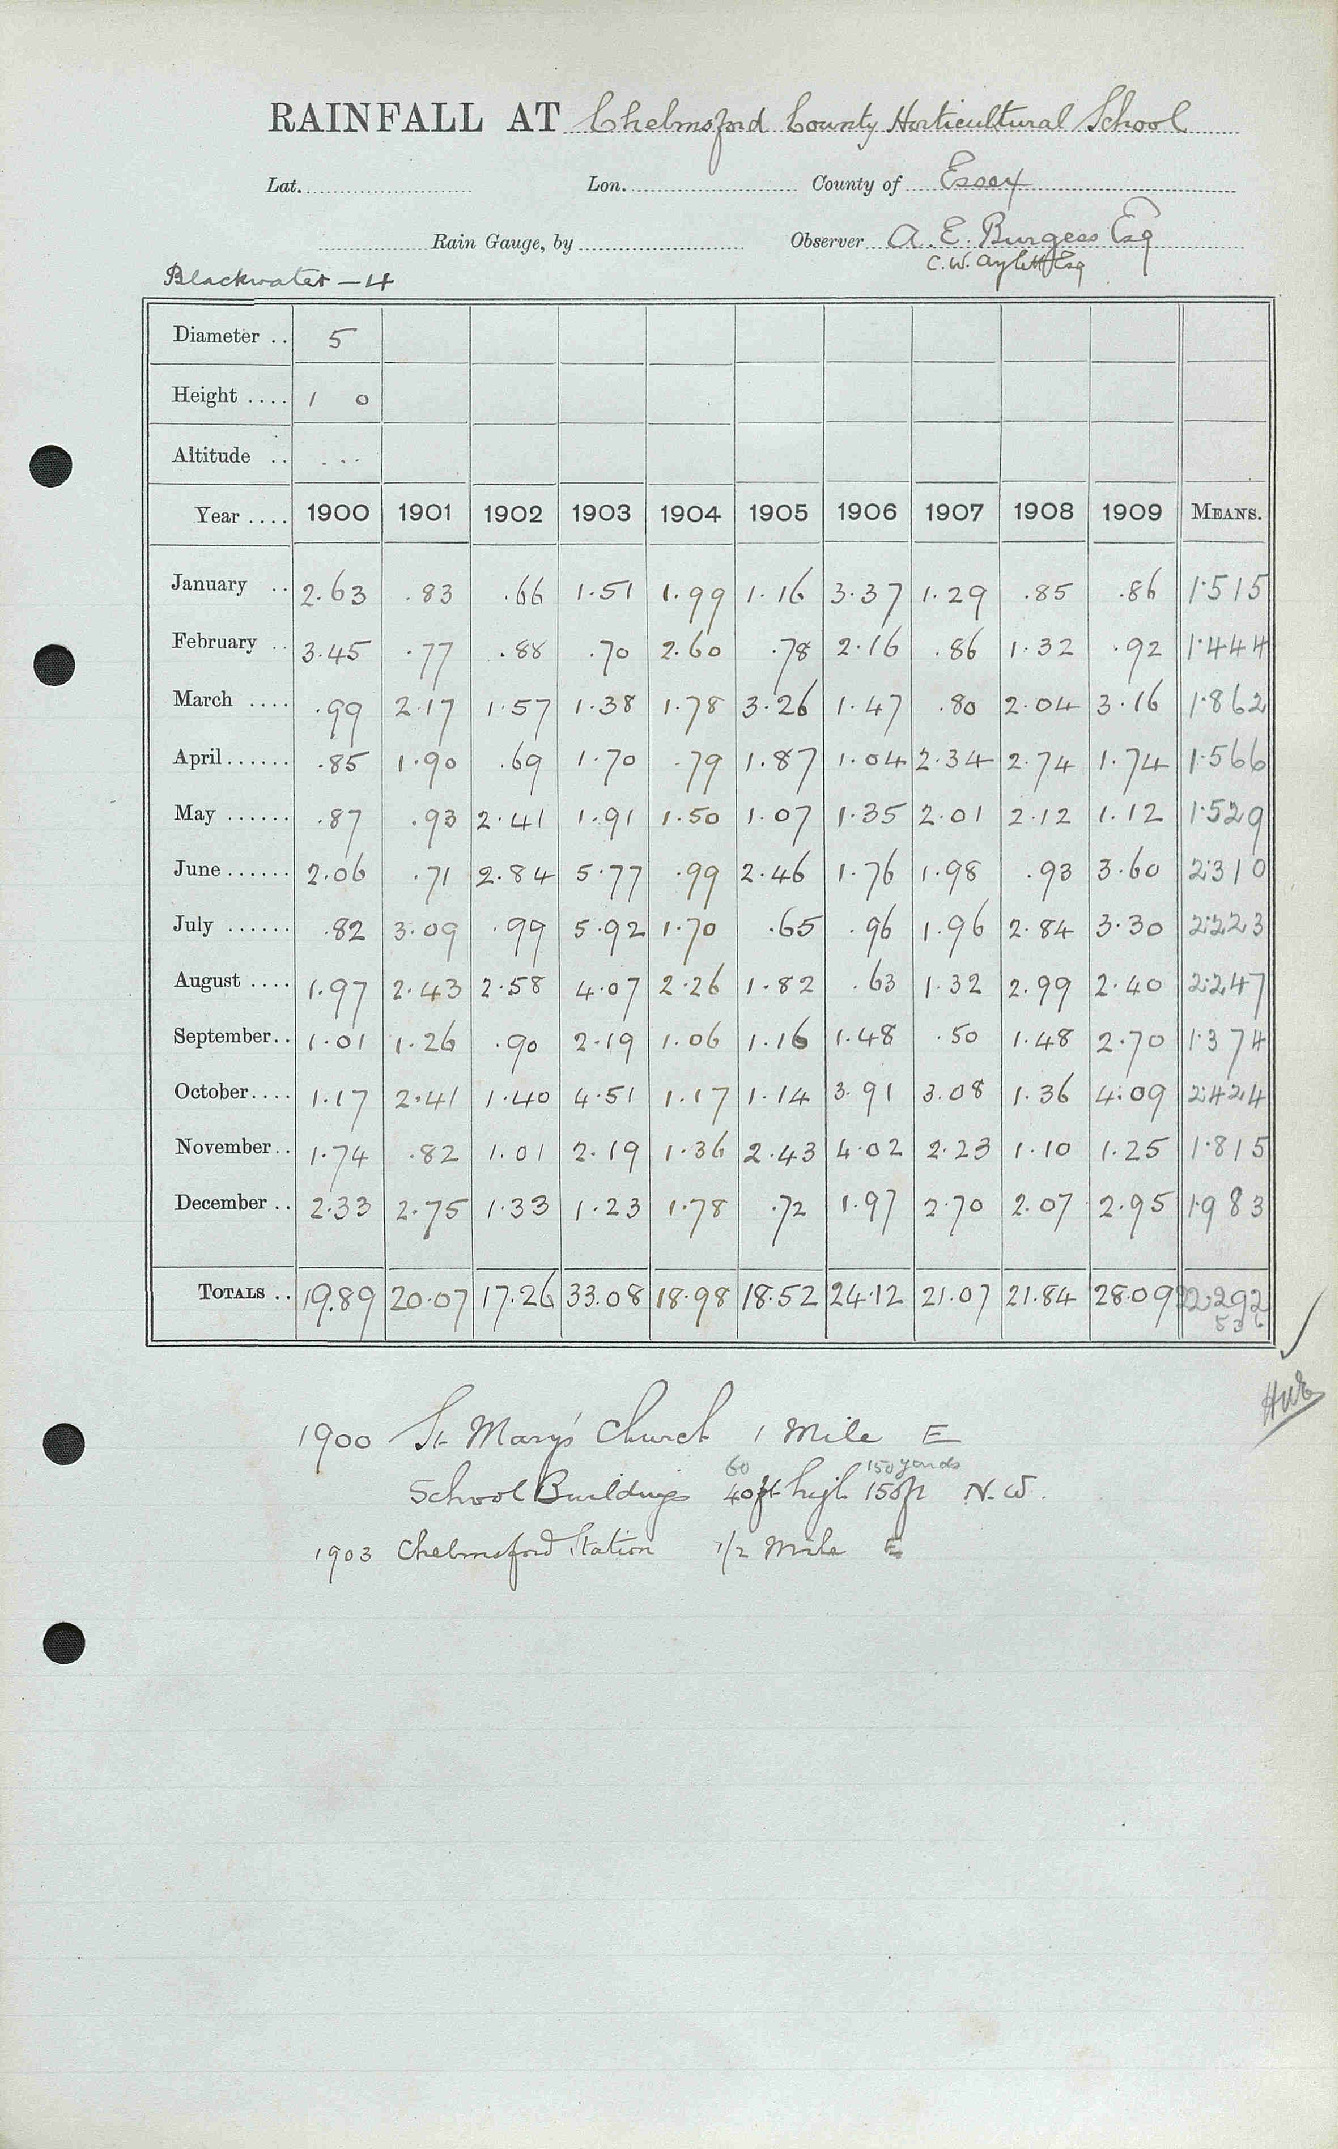 RAINFALL AT Chelmsford County Horticultural School
Lat. Lon. County of Essex
Rain Gauge, by Observer A. E. Burgess Esq
C. W. Aylett Esq
Blackwater – 4
Diameter .. 5
Height .... 1 0
Altitude .. ...
Year .... 1900 1901 1902 1903 1904 1905 1906 1907 1908 1909 MEANS.
January .. 2.63 .83 .66 1.51 1.99 1.16 3.37 1.29 .85 .86 1.515
February .. 3.45 .77 .88 .70 2.60 .78 2.16 .86 1.32 .92 1.444
March .... .99 2.17 1.57 1.38 1.78 3.26 1.47 .80 2.04 3.16 1.862
April...... .85 1.90 .69 1.70 .79 1.87 1.04 2.34 2.74 1.74 1.566
May ...... .87 .93 2.41 1.91 1.50 1.07 1.35 2.01 2.12 1.12 1.529
June...... 2.06 .71 2.84 5.77 .99 2.46 1.76 1.98 .93 3.60 2.310
July ...... .82 3.09 .99 5.92 1.70 .65 .96 1.96 2.84 3.30 2.223
August .... 1.97 2.43 2.58 4.07 2.26 1.82 .63 1.32 2.99 2.40 2.247
September.. 1.01 1.26 .90 2.19 1.06 1.16 1.48 .50 1.48 2.70 1.374
October.... 1.17 2.41 1.40 4.51 1.17 1.14 3.91 3.08 1.36 4.09 2.424
November.. 1.74 .82 1.01 2.19 1.36 2.43 4.02 2.23 1.10 1.25 1.815
December .. 2.33 2.75 1.33 1.23 1.78 .72 1.97 2.70 2.07 2.95 1.983
TOTALS .. 19.89 20.07 17.26 33.08 18.98 18.52 24.12 21.07 21.84 28.09 22.292
1900 St Mary's Church 1 Mile E
60 150 yards
School Buildings 40ft high 150ft N.W.
1903 Chelmsford Station 1/2 Mile E